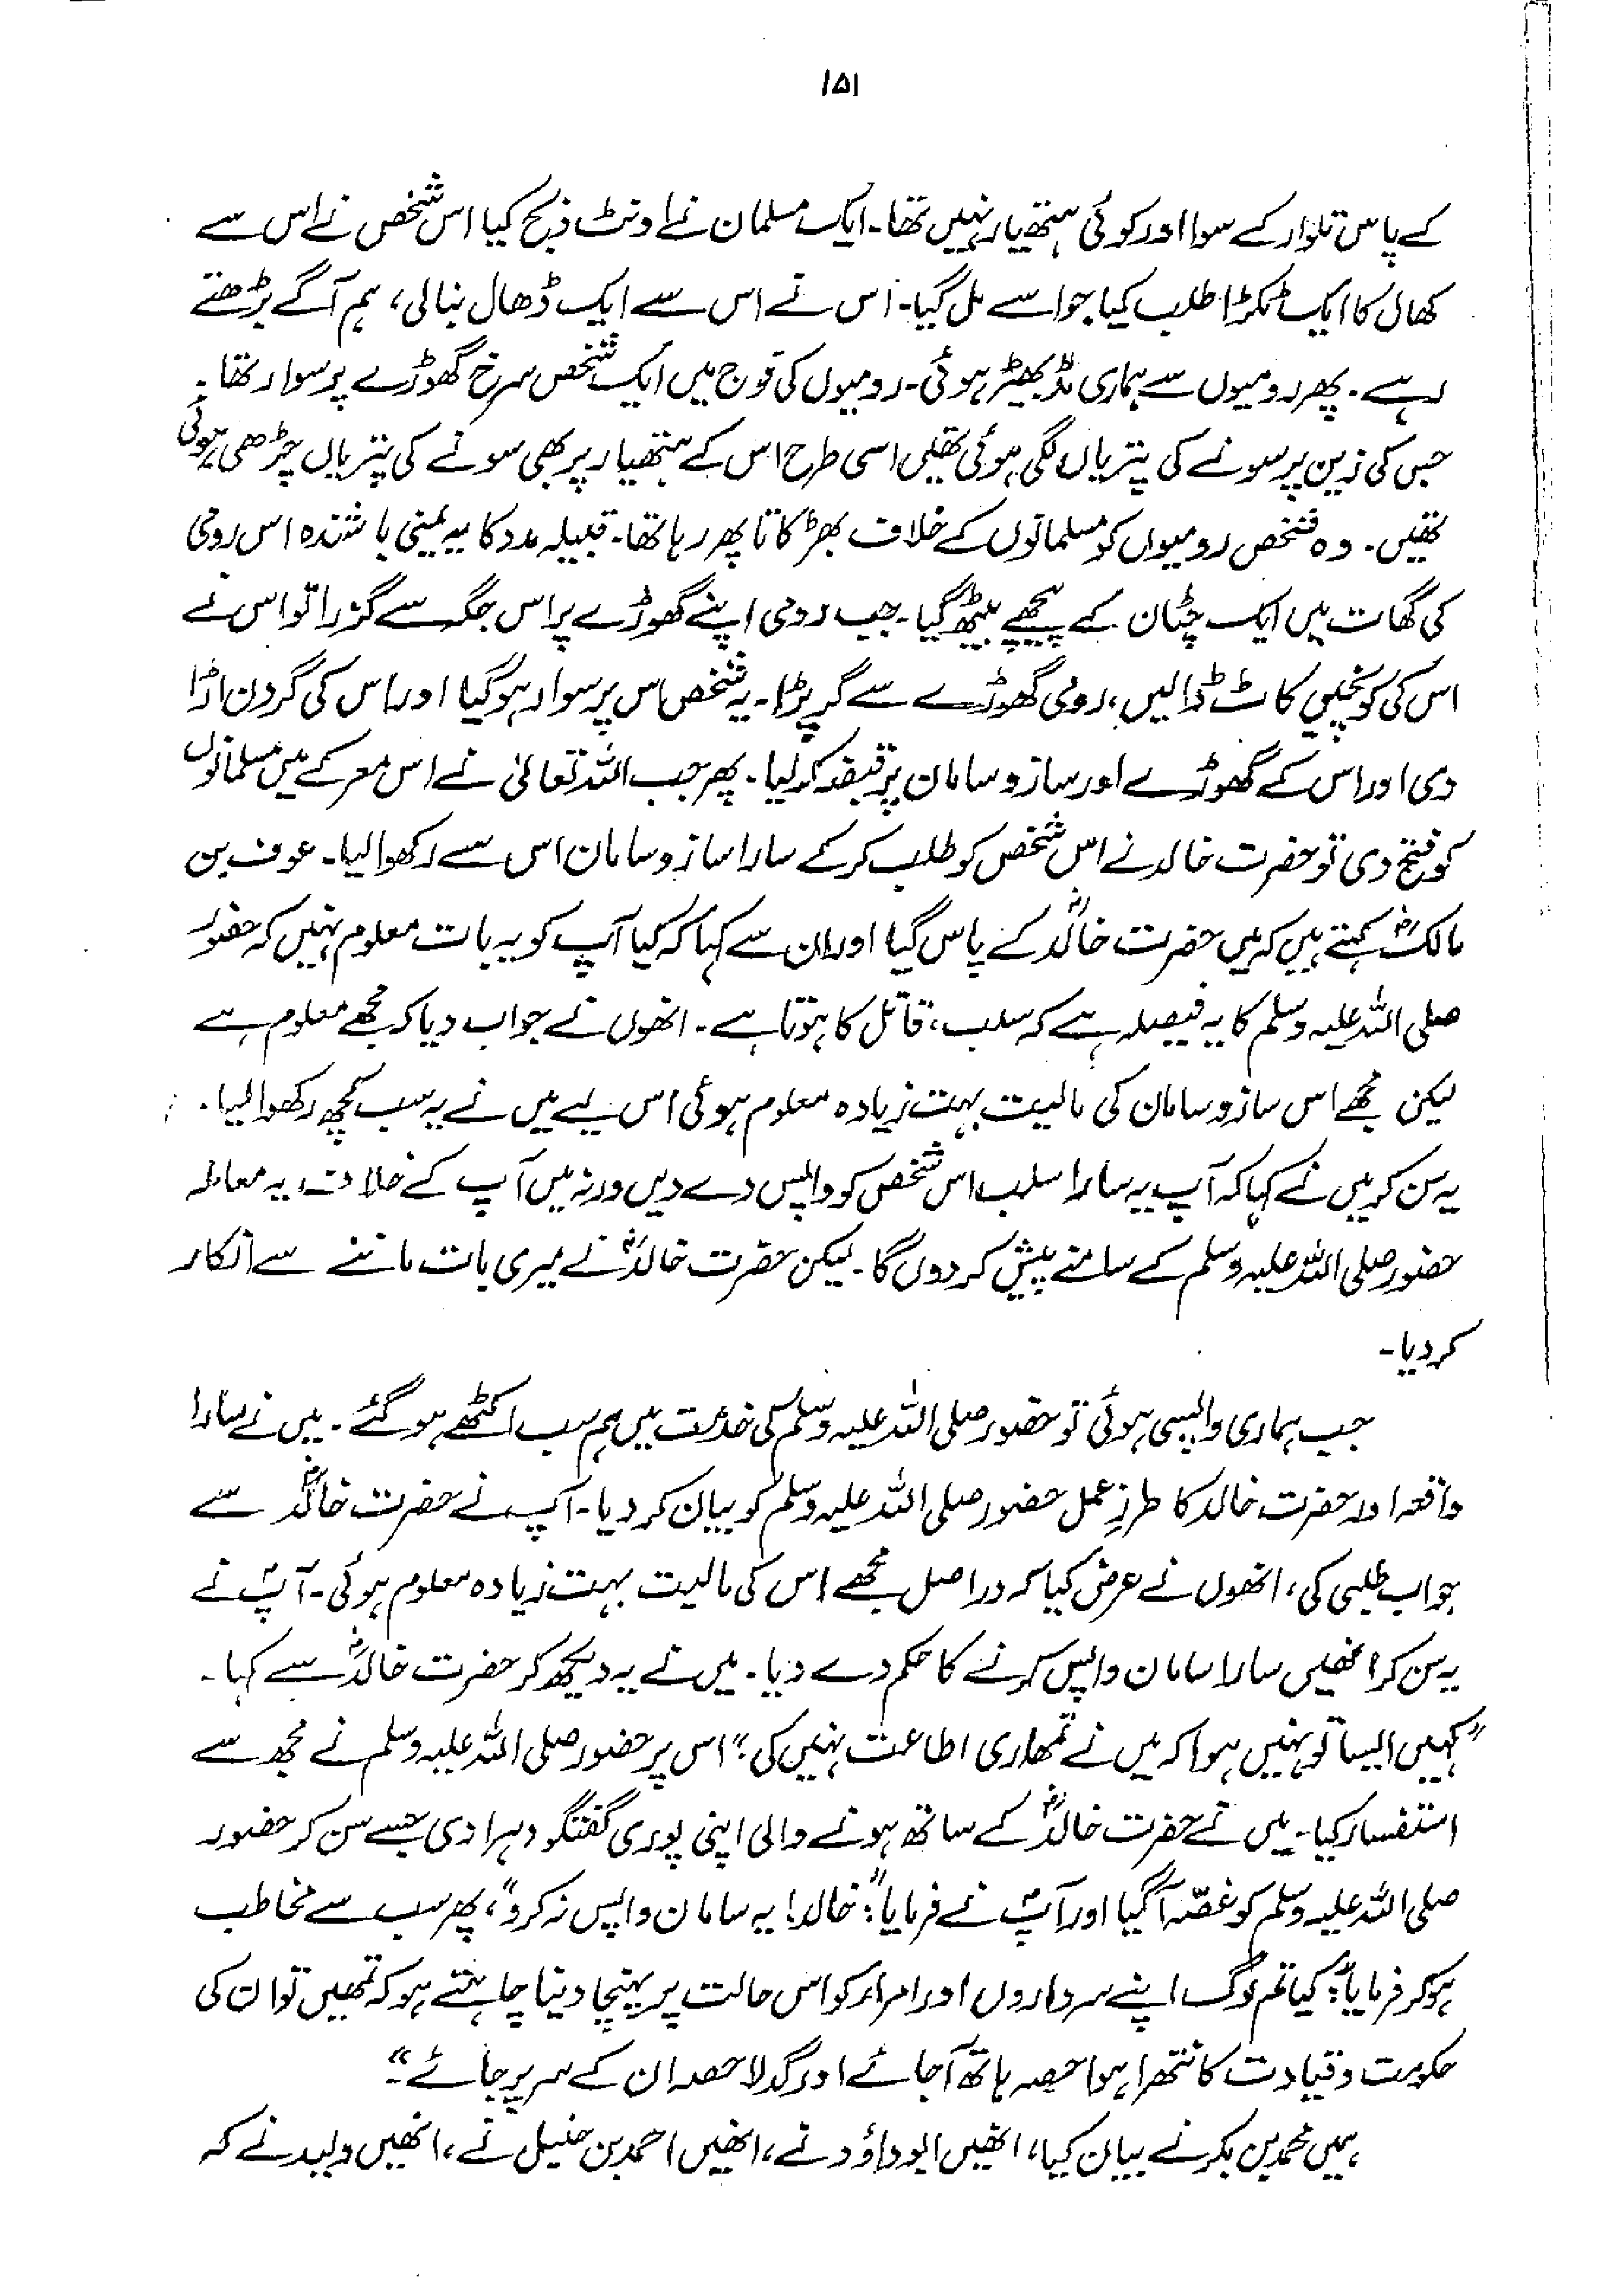 ۱۵۱
کے پاس تلوار کے سوا اور کوئی ہتھیار نہیں تھا۔ ایک مسلمان نے اونٹ ذبح کیا اس شخص نے اس سے
کھال کا ایک ٹکڑا طلب کیا جو اسے مل گیا۔ اس نے اس سے ایک ڈھال بنالی، ہم آگے بڑھتے
رہے۔ پھر رومیوں سے ہماری مڈبھیڑ ہوئی۔ رومیوں کی فوج میں ایک شخص سرخ گھوڑے پر سوار تھا۔
جس کی زین پر سونے کی پتریاں لگی ہوئی تھیں اسی طرح اس کے ہتھیار پر بھی سونے کی پتریاں چڑھی ہوئی
تھیں۔ وہ شخص رومیوں کو مسلمانوں کے خلاف بھڑکاتا پھر رہا تھا۔ قبیلہ مدد کا یہ یمینی باشندہ اس رومی
کی گھات میں ایک چٹان کے پیچھے بیٹھ گیا۔ جب رومی اپنے گھوڑے پر اس جگہ سے گزرا تو اس نے
اس کی کونچیں کاٹ ڈالیں، رومی گھوڑے سے گر پڑا۔ یہ شخص اس پر سوار ہوگیا اور اس کی گردن اڑا
دی اور اس کے گھوڑے اور ساز و سامان پر قبضہ کرلیا۔ پھر جب اللہ تعالیٰ نے اس معرکے میں مسلمانوں
کو فتح دی تو حضرت خالد نے اس شخص کو طلب کرکے سارا ساز و سامان اس سے رکھوالیا۔ عوف بن
مالکؓ کہتے ہیں کہ میں حضرت خالدؓ کے پاس گیا اور ان سے کہا کہ کیا آپ کو یہ بات معلوم نہیں کہ حضور
صلی اللہ علیہ وسلم کا یہ فیصلہ ہے کہ سلب، قاتل کا ہوتا ہے۔ انھوں نے جواب دیا کہ مجھے معلوم ہے
لیکن مجھے اس ساز و سامان کی مالیت بہت زیادہ معلوم ہوئی اس لیے میں نے یہ سب کچھ رکھوالیا۔
یہ سن کر میں نے کہا کہ آپ یہ سارا سلب اس شخص کو واپس دے دیں ورنہ میں آپ کے خلاف یہ معاملہ
حضور صلی اللہ علیہ وسلم کے سامنے پیش کردوں گا۔ لیکن حضرت خالدؓ نے میری بات ماننے سے انکار
کردیا۔
جب ہماری واپسی ہوئی تو حضور صلی اللہ علیہ وسلم کی خدمت میں ہم سب اکٹھے ہوگئے۔ میں نے سارا
واقعہ اور حضرت خالد کا طرزِ عمل حضور صلی اللہ علیہ وسلم کو بیان کردیا۔ آپ نے حضرت خالدؓ سے
جواب طلبی کی، انھوں نے عرض کیا کہ دراصل مجھے اس کی مالیت بہت زیادہ معلوم ہوئی۔ آپؐ نے
یہ سن کر انھیں سارا سامان واپس کرنے کا حکم دے دیا۔ میں نے یہ دیکھ کر حضرت خالدؓ سے کہا۔
"کہیں ایسا تو نہیں ہوا کہ میں نے تمھاری اطاعت نہیں کی؟" اس پر حضور صلی اللہ علیہ وسلم نے مجھ سے
استفسار کیا۔ میں نے حضرت خالدؓ کے ساتھ ہونے والی اپنی پوری گفتگو دہرادی جسے سن کر حضور
صلی اللہ علیہ وسلم کو غصّہ آگیا اور آپؐ نے فرمایا: "خالد! یہ سامان واپس نہ کرو"، پھر سب سے مخاطب
ہوکر فرمایا: "کیا تم لوگ اپنے سرداروں اور امراء کو اس حالت پر پہنچا دینا چاہتے ہو کہ تمھیں تو ان کی
حکومت و قیادت کا نتھرا ہوا حصہ ہاتھ آجائے اور گدلا حصہ ان کے سر پر جائے۔"
ہمیں محمد بن بکر نے بیان کیا، انھیں ابوداؤد نے، انھیں احمد بن حنبل نے، انھیں ولید نے کہ